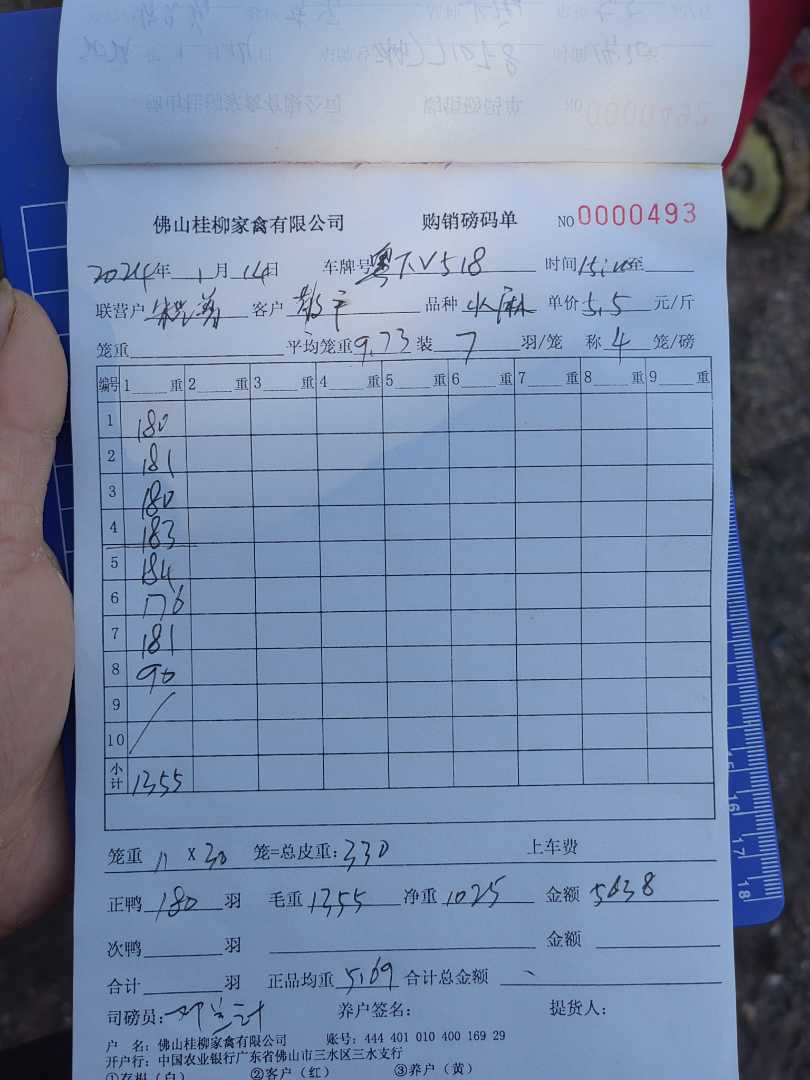 佛山桂柳家禽有限公司 购销磅码单 NO 0000493
2024年 1月14日 车牌号 粤TV518 时间15:00至
联营户 客户 散户 品种 小麻 单价5.5元/斤
笼重 平均笼重9.73装 7 羽/笼 称 4 笼/磅
编号 1 重 2 重 3 重 4 重 5 重 6 重 7 重 8 重 9 重
1 180
2 181
3 180
4 183
5 184
6 176
7 181
8 90
9
10
小计 1355
笼重 11 X 30 笼=总皮重:330 上车费
正鸭 180 羽 毛重 1355 净重 1025 金额 5638
次鸭 羽 金额
合计 羽 正品均重 5.69 合计总金额
司磅员: 养户签名: 提货人:
户 名: 佛山桂柳家禽有限公司 账号: 444 401 010 400 169 29
开户行: 中国农业银行广东省佛山市三水区三水支行
①存根(白) ②客户(红) ③养户(黄)
15
16
17
18